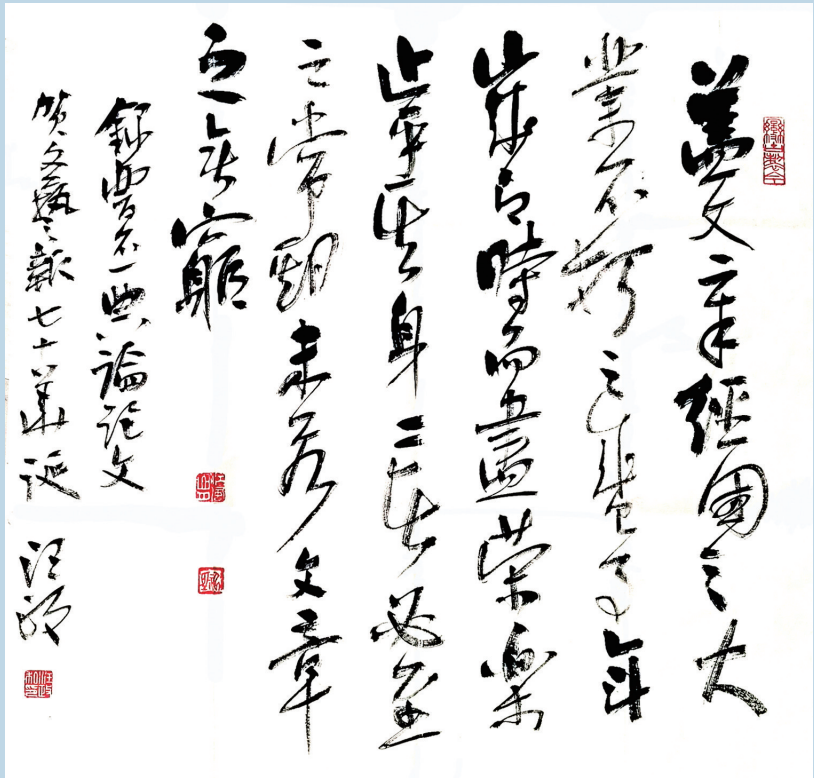 蓋文章經國之大
業不朽之盛事年
有時而盡榮樂
止乎其身二者必至
之常期未若文章
之無窮
錄曹丕典論論文
賀文藝報七十華誕 汪政